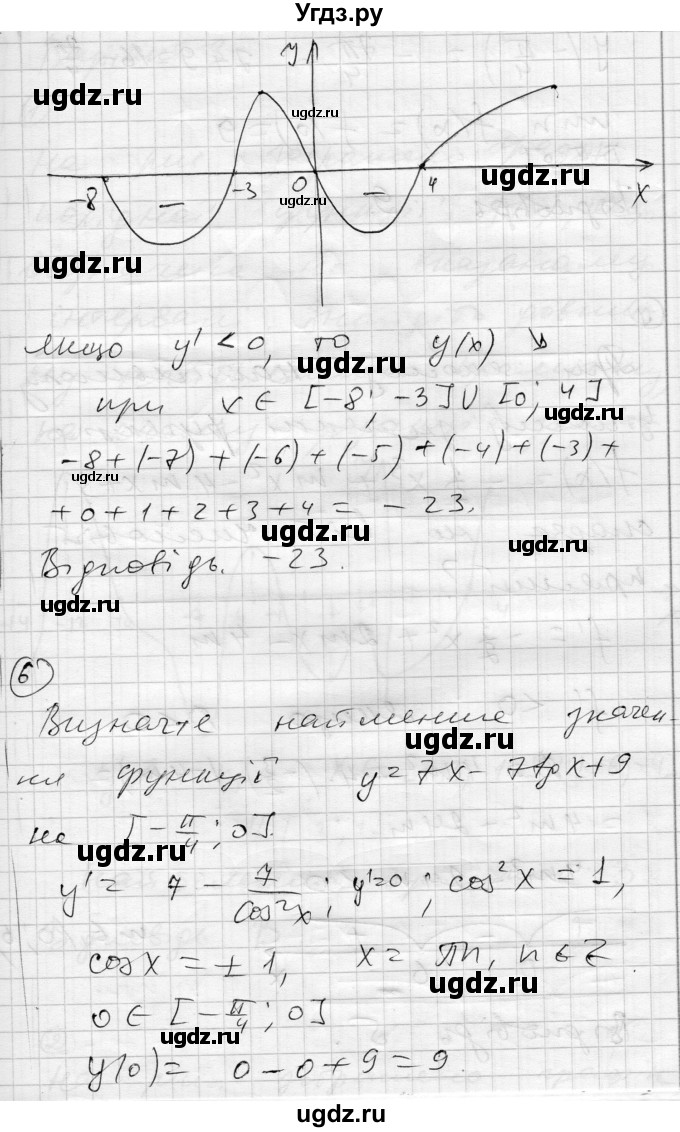 Угдз.ру
y
ugdz.ru
ugdz.ru
-8
-3
0
4
x
ugdz.ru
ugdz.ru
−
−
ugdz.ru
якщо y' < 0, то y(x) ↘
ugdz.ru
при x ∈ [-8; -3] ∪ [0; 4]
ugdz.ru
-8 + (-7) + (-6) + (-5) + (-4) + (-3) +
ugdz.ru
+ 0 + 1 + 2 + 3 + 4 = - 23.
ugdz.ru
ugdz.ru
Відповідь. -23.
ugdz.ru
6
Визначте найменше значен-
ugdz.ru
ня функції y = 7x - 7tgx + 9
ugdz.ru
на [-π/4; 0].
y' = 7 - 7/cos²x; y'=0; cos²x = 1,
ugdz.ru
cosx = ±1, x = πn, n ∈ Z
ugdz.ru
0 ∈ [-π/4; 0]
ugdz.ru
y(0) = 0 - 0 + 9 = 9.
ugdz.ru
ugdz.ru